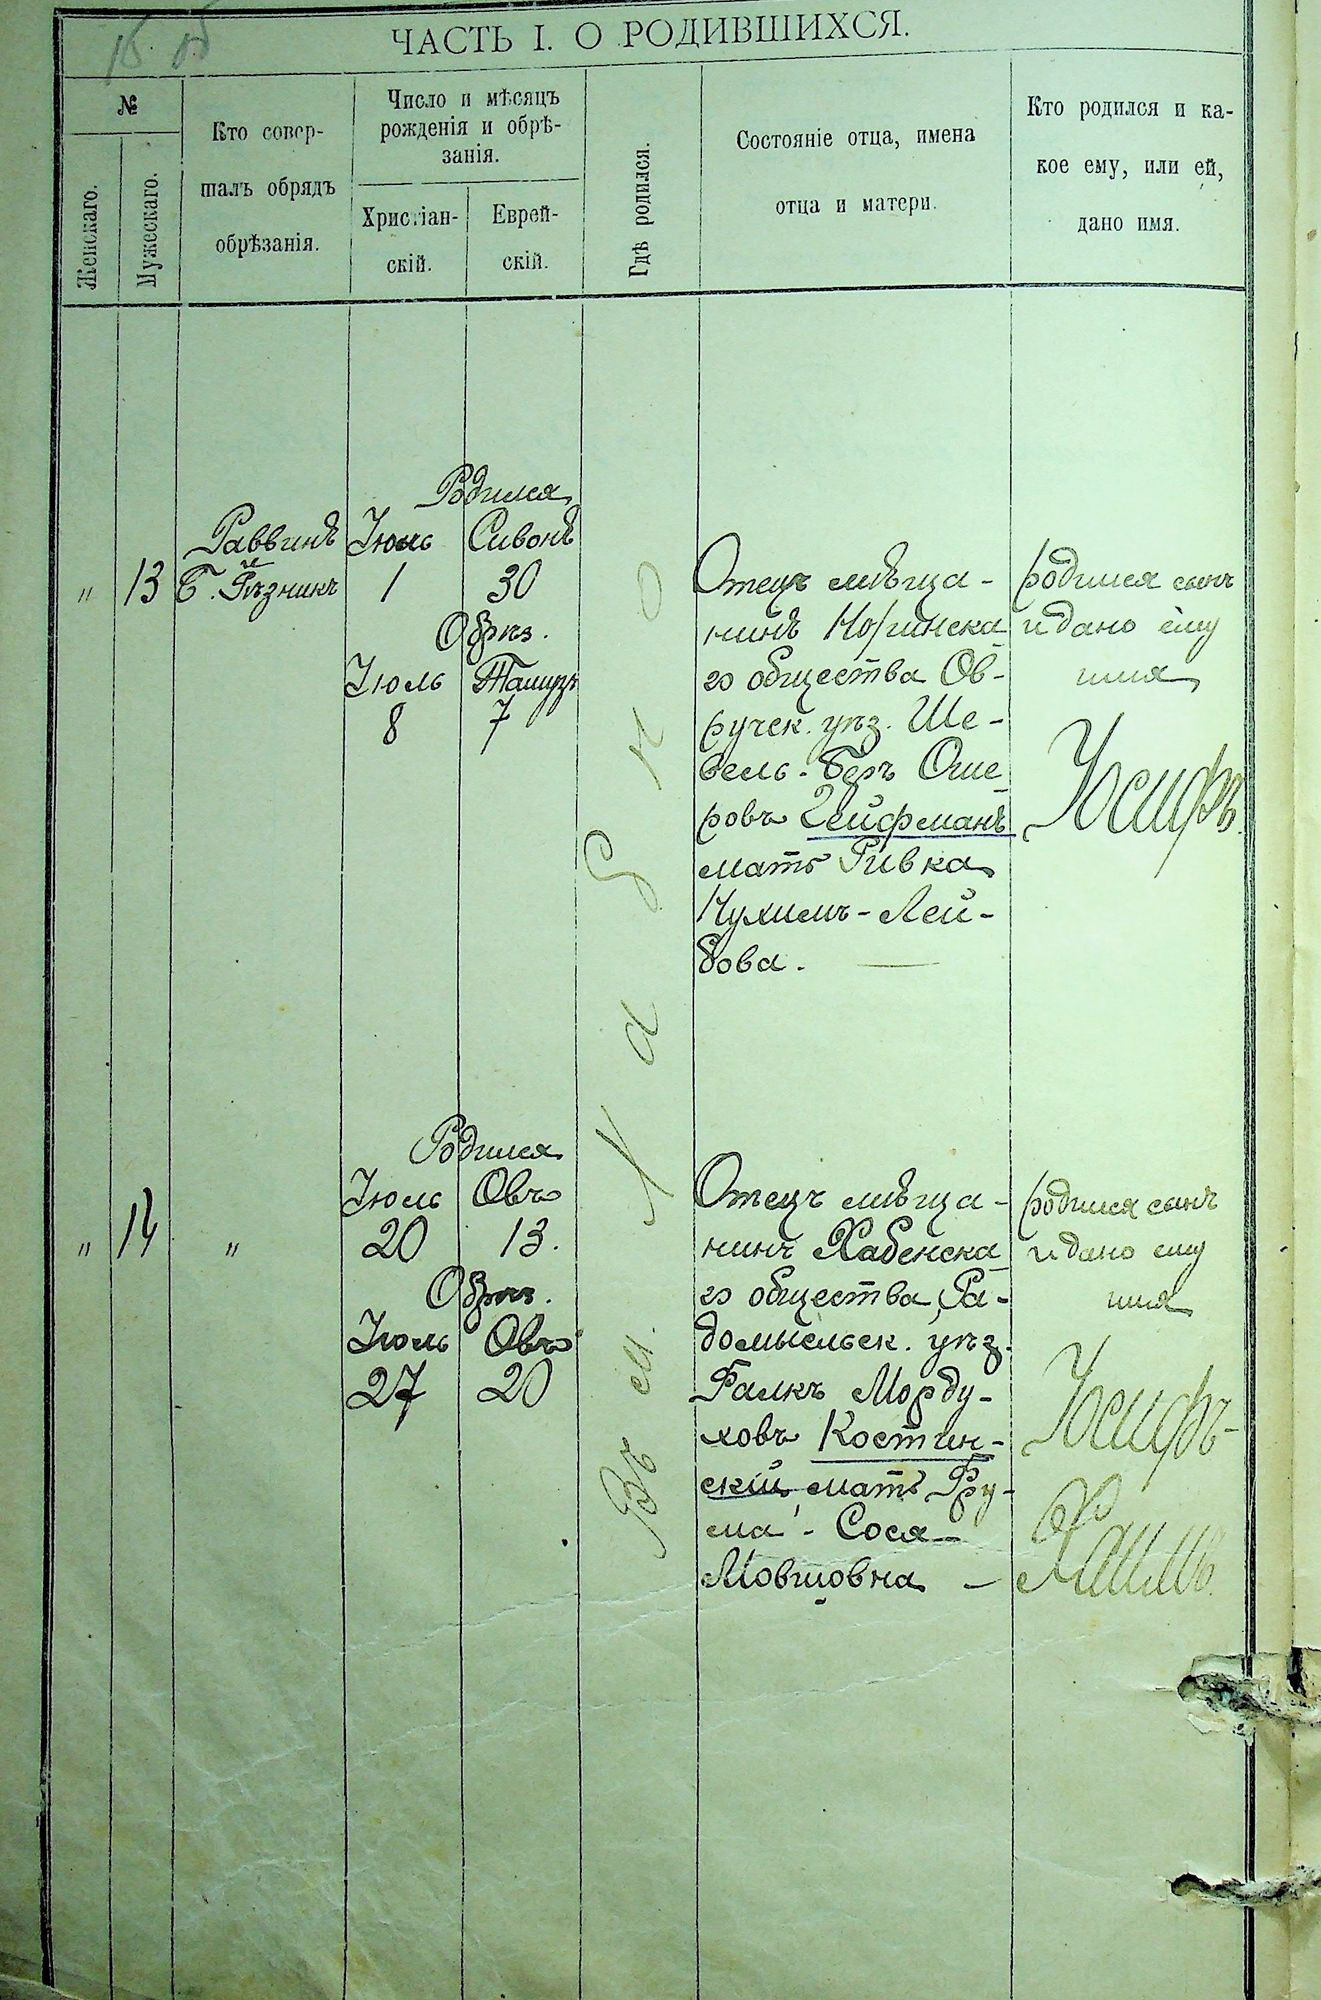 ЧАСТЬ I. О РОДИВШИХСЯ.
№
Женскаго.
Мужескаго.
Кто совер-
шалъ обрядъ
обрѣзанія.
Число и мѣсяцъ
рожденія и обрѣ-
занія.
Христіан-
скій.
Еврей-
скій.
Гдѣ родился.
Состояніе отца, имена
отца и матери.
Кто родился и ка-
кое ему, или ей,
дано имя.
"
13
Раввинъ
Б. Рѣзникъ
Родился
Іюль Сивонъ
1 30
Обрѣз.
Іюль Тамузъ
8 7
Въ м. Хабно
Отецъ мѣща-
нинъ Норинска
го общества Ов-
ручск. уѣз. Ше-
вель-Беръ Оше
ровъ Гейфманъ
мать Ривка
Нухимъ-Лей-
бова.
родился сынъ
и дано ему
имя
Іосифъ
"
14
"
Родился
Іюль Овъ
20 13.
Обрѣз.
Іюль Овъ
27 20
Отецъ мѣща-
нинъ Хабенска
го общества, Ра-
домысльск. уѣз.
Фалкъ Морду-
ховъ Костин-
скій мать Фру-
ма - Сося
Мовшовна
родился сынъ
и дано ему
имя
Іосифъ-
Хаимъ.